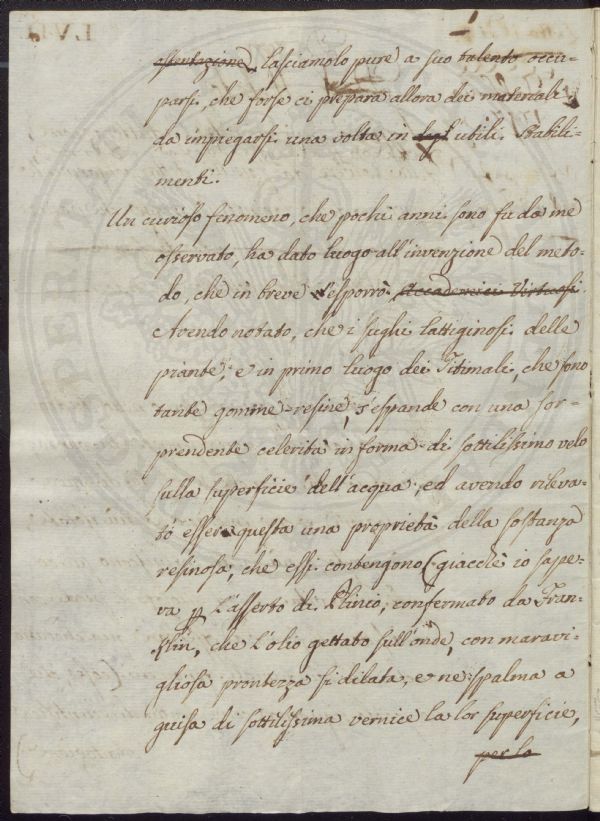 LVI
ostentazione, lasciamolo pure a suo talento occu-
parsi, che forse ci prepara allora dei materiali
da impiegarsi una volta in utili stabili-
menti.
Un curioso fenomeno, che pochi anni sono fu da me
osservato, ha dato luogo all'invenzione del meto-
do, che in breve esporrò. Accademici Virtuosi.
Avendo notato, che i sughi lattiginosi delle
piante, e in primo luogo dei Titimali, che sono
tante gomme-resine, s'espande con una sor-
prendente celerità in forma di sottilissimo velo
sulla superficie dell'acqua, ed avendo rileva-
to esser questa una proprietà della sostanza
resinosa, che essi contengono (giacchè io sape-
va p l'asserto di Plinio, confermato da Fran-
klin, che l'olio gettato sull'onde, con maravi-
gliosa prontezza si dilata, e ne spalma a
guisa di sottilissima vernice la lor superficie,
per la